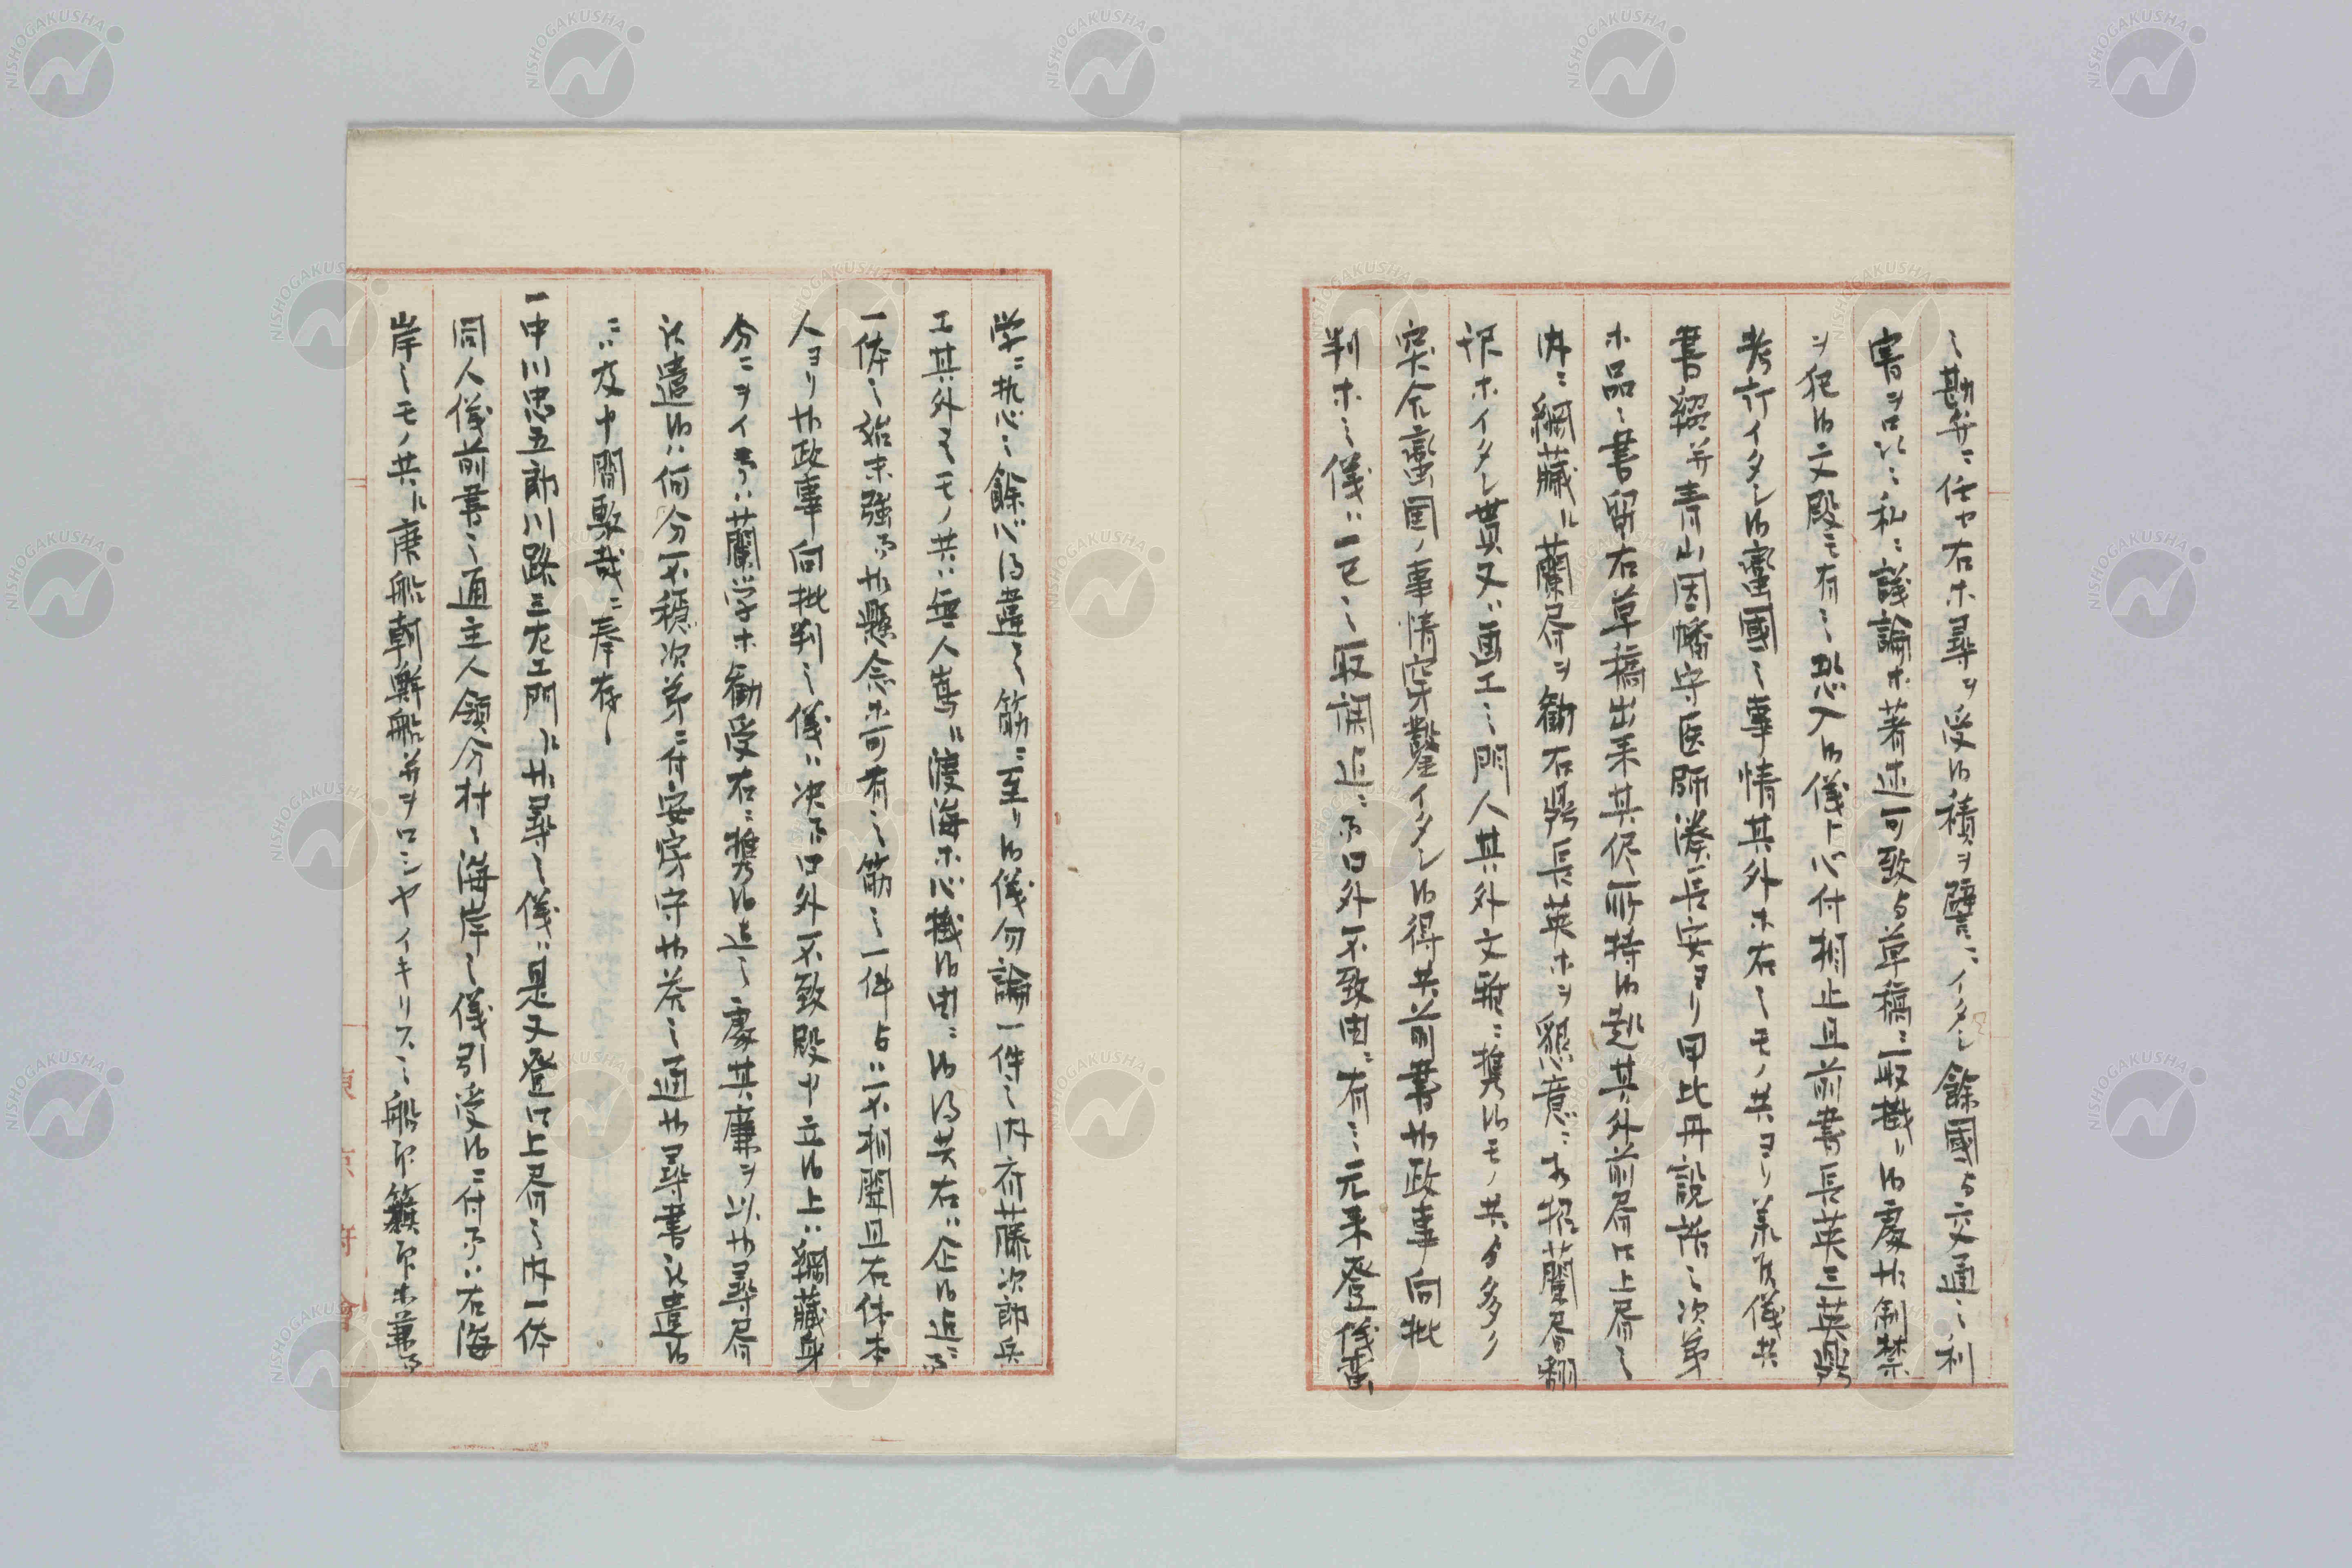 之勘弁ニ仕ヤ右ホ尋ヲ受候積ヲ譬ニイタシ餘國与交通之利
害ヲ以テ私ニ議論ホ著述可致与草稿ニ取掛リ候處御制禁
ヲ犯候文段モ有之恐入候儀ト心付相止且前書長英三英興
考行イタシ候蛮國之事情其外ホ右之モノ共ヨリ承及儀共
書綴并青山因幡守医師湊長安ヨリ甲比丹説話之次第
ホ品々書留右草稿出来其侭所持候趣其外前屑口上屑之
内ニ綱蔵ニ蘭屑ヲ勧右興長英ホヲ懇意ニホ招蘭屑翻
訳ホイタシ貰又ニ画工之門人其外文雅ニ携候モノ共与多ク
突合蛮国ノ事情穿鑿イタシ候得共前書御政事向批
判ホ之儀ニ一己之取調迄ニ而口外不致由ニ有之元来登儀蛮
学ニ執心之餘心得違之筋ニ至リ候儀勿論一件之内斎藤次郎兵
エ其外々モノ共ニ無人嶌ニ渡海ホ心掛候由ニ候得共右ニ企候迄ニ而
一体之始末強而御懸念ホ可有之筋之一件与ニ不相聞且右体本
人ヨリ御政事向批判之儀ニ決而口外不致段申立候上ニ綱蔵身
分ニヲイテハ蘭学ホ勧受右ニ携候迄之處其廉ヲ以御尋屑
被遣候ハ何分不穏次第ニ付安房守御答之通御尋書被遣候
ニ不及申間敷哉ニ奉存候
一中川忠五郎川路三左エ門ニ御尋之儀ニ是又登口上屑之内一体
同人儀前書之通主人領分村之海岸之儀引受候ニ付而ハ右海
岸之モノ共ニ唐船朝鮮船并ヲロシヤイキリス之船印籏印ホ兼而
東京府會
NISHOGAKUSHA